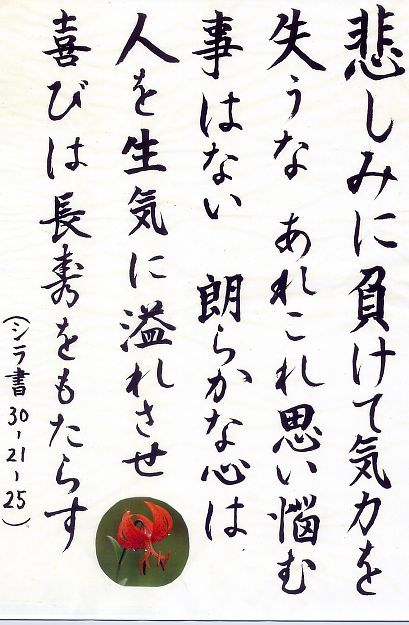 悲しみに負けて気力を
失うな　あれこれ思い悩む
事はない　朗らかな心は
人を生気に溢れさせ
喜びは長寿をもたらす
(シラ書30-21-25)